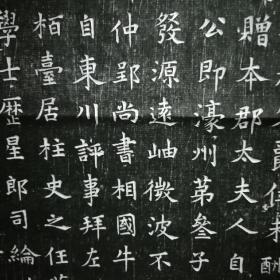 贈本郡太夫人自
公即濠州第叄子
發源遠岫微波不
仲郢尚書相國牛
自東川評事拜左
栢臺居柱史之任
學士歷星郎司綸